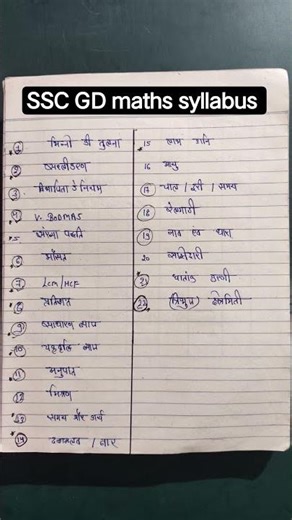 SSC GD maths syllabus
1 भिन्नो की तुलना
2 सरलीकरण
3 विभाजिता के नियम
4 V. BODMAS
5 संख्या पद्धति
6 औसत
7 LCM/HCF
8 प्रतिशत
9 साधारण ब्याज
10 चक्रवृद्धि ब्याज
11 अनुपात
12 मिश्रण
13 समय और कार्य
14 / नाव
15 लाभ हानि
16 आयु
17 चाल / दूरी / समय
18
19 नाव एवं धारा
20 साझेदारी
21 घातांक करणी
22 (त्रिभुज)